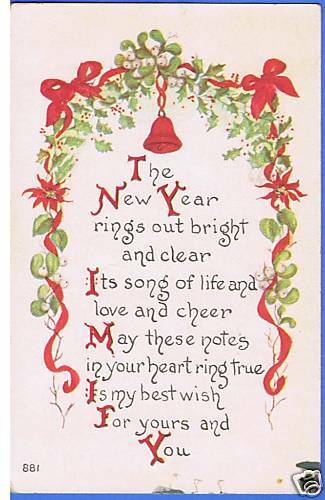 The
New Year
rings out bright
and clear
Its song of life and
love and cheer
May these notes
in your heart ring true
Is my best wish
For yours and
You
881